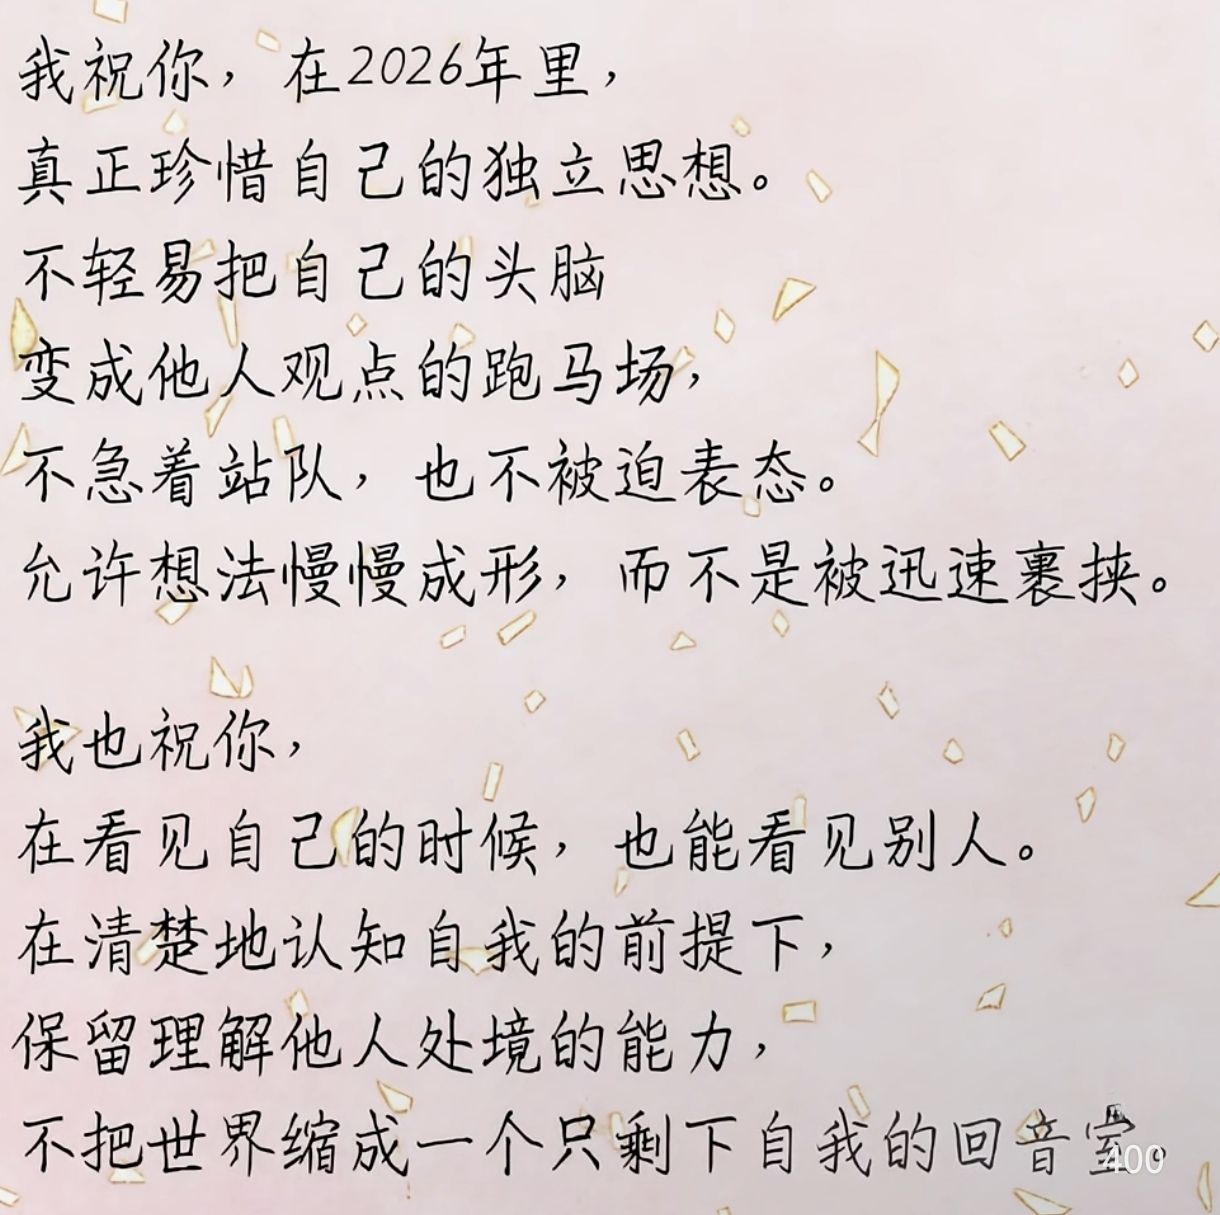 我祝你，在2026年里，
真正珍惜自己的独立思想。
不轻易把自己的头脑
变成他人观点的跑马场，
不急着站队，也不被迫表态。
允许想法慢慢成形，而不是被迅速裹挟。
我也祝你，
在看见自己的时候，也能看见别人。
在清楚地认知自我的前提下，
保留理解他人处境的能力，
不把世界缩成一个只剩下自我的回音室。
400